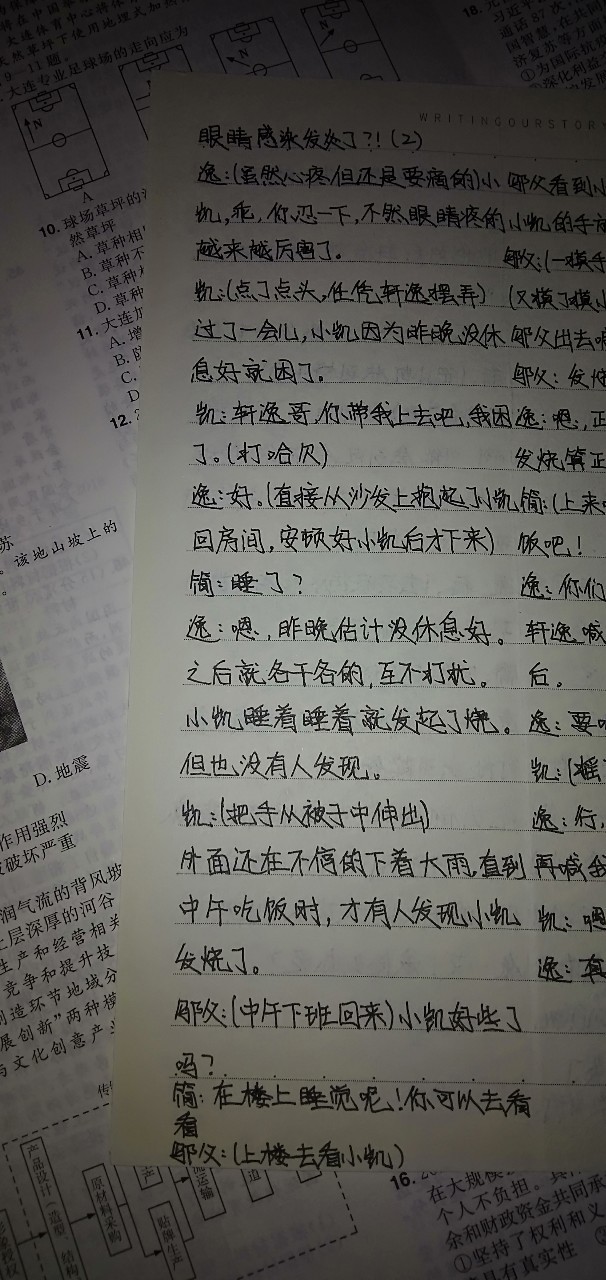 WRITINGOURSTORY
眼睛感染发炎了?!(2)
逸:(虽然心疼但还是要滴的)小
凯,乖,你忍一下,不然眼睛疼的
越来越厉害了。
凯:(点了点头,任凭轩逸摆弄)
过了一会儿,小凯因为昨晚没休
息好就困了。
凯:轩逸哥,你带我上去吧,我困
了。(打哈欠)
逸:好。(直接从沙发上抱起了小凯
回房间,安顿好小凯后才下来)
简:睡了?
逸:嗯,昨晚估计没休息好。
之后就各干各的,互不打扰。
小凯睡着睡着就发起了烧。
但也没有人发现。
凯:(把手从被子中伸出)
外面还在不停的下着大雨,直到
中午吃饭时,才有人发现小凯
发烧了。
邬父:(中午下班回来)小凯好些了
吗?
简:在楼上睡觉呢!你可以去看
看
邬父:(上楼去看小凯)
邬父看到小
小凯的手放
邬父:(一摸手
(又摸了摸小
邬父出去喊
邬父:发烧
逸:嗯,正
发烧算正
简:(上来
饭吧!
逸:你们
轩逸喊
后。
逸:要
凯:(摇
逸:行,
再喊我
凯:嗯
逸:真
大连专业足球场的走向应为
N
A
9—11题。
10. 球场草坪的
然草坪
A. 草种相
B. 草种不
C. 草种
D. 草种
11. 大连
A. 增
B.
C.
D
12.
该地山坡上的
D. 地震
作用强烈
破坏严重
润气流的背风坡
土层深厚的河谷
生产和经营相关
竞争和提升技
制造环节地域分
展创新”两种模
与文化创意产
产品设计
造型
结构
原材料采购
贴牌生产
运输
16.
在大规模
个人不负担。
余和财政资金共同承
①坚持了权利和义
具有真实性
18.
习近平
通话87次
国智慧,在共同
济复苏等方面
①为国际抗疫
②深化利益